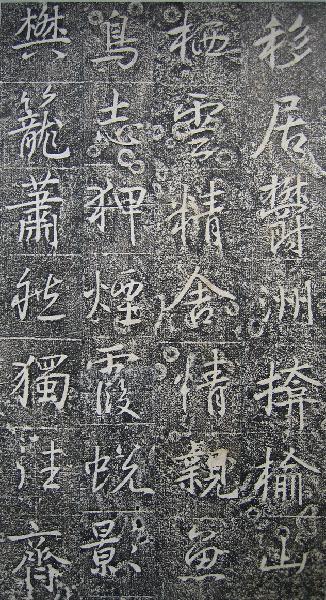 移居鬱洲揜榆山
栖雲精舍情親魚
鳥志狎煙霞蛻景
樊籠蕭然獨往齊